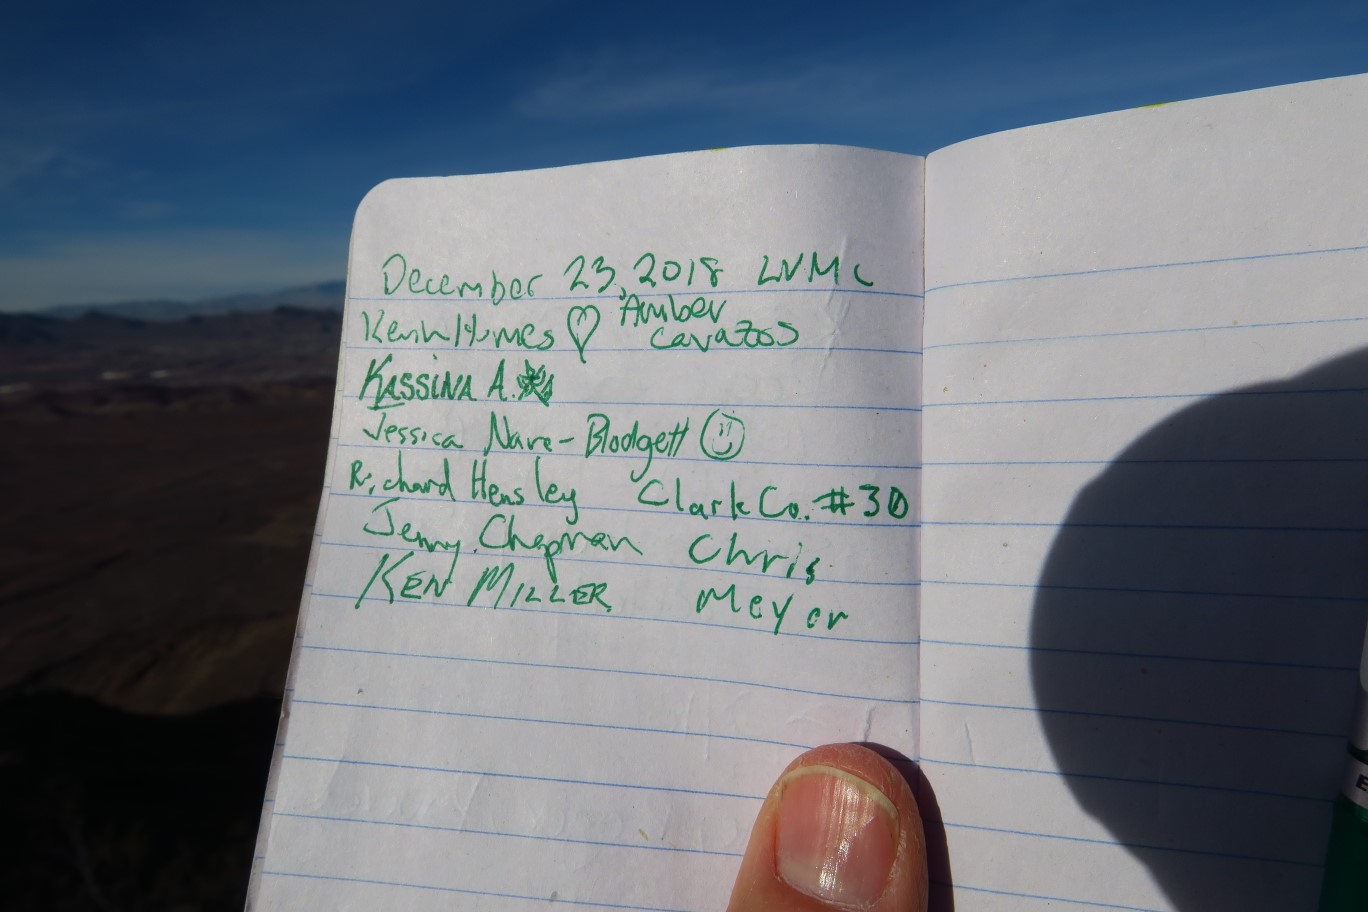 December 23, 2018 LVMC
Amber
Humes ♡ Cavazos
Kassina A.
Jessica Nare-Blodgett ☺
Richard Hensley Clark Co. #30
Jenny Chapman Chris
KEN MILLER Meyer